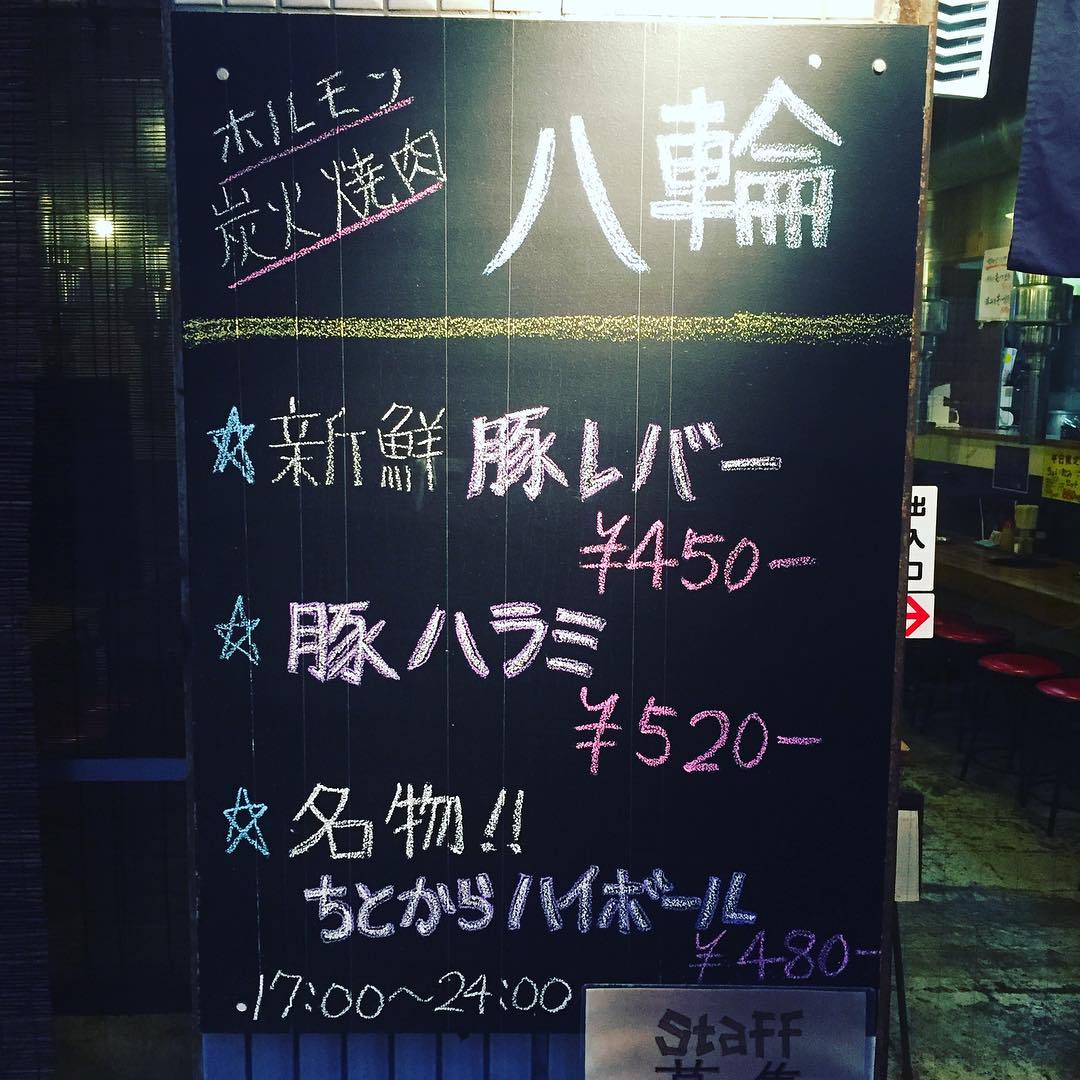 ホルモン
炭火焼肉
八輪
☆新鮮豚レバー
¥450-
☆豚ハラミ
¥520-
☆名物!!
ちとからハイボール
¥480-
・17:00〜24:00
Staff
募集
出入口
→